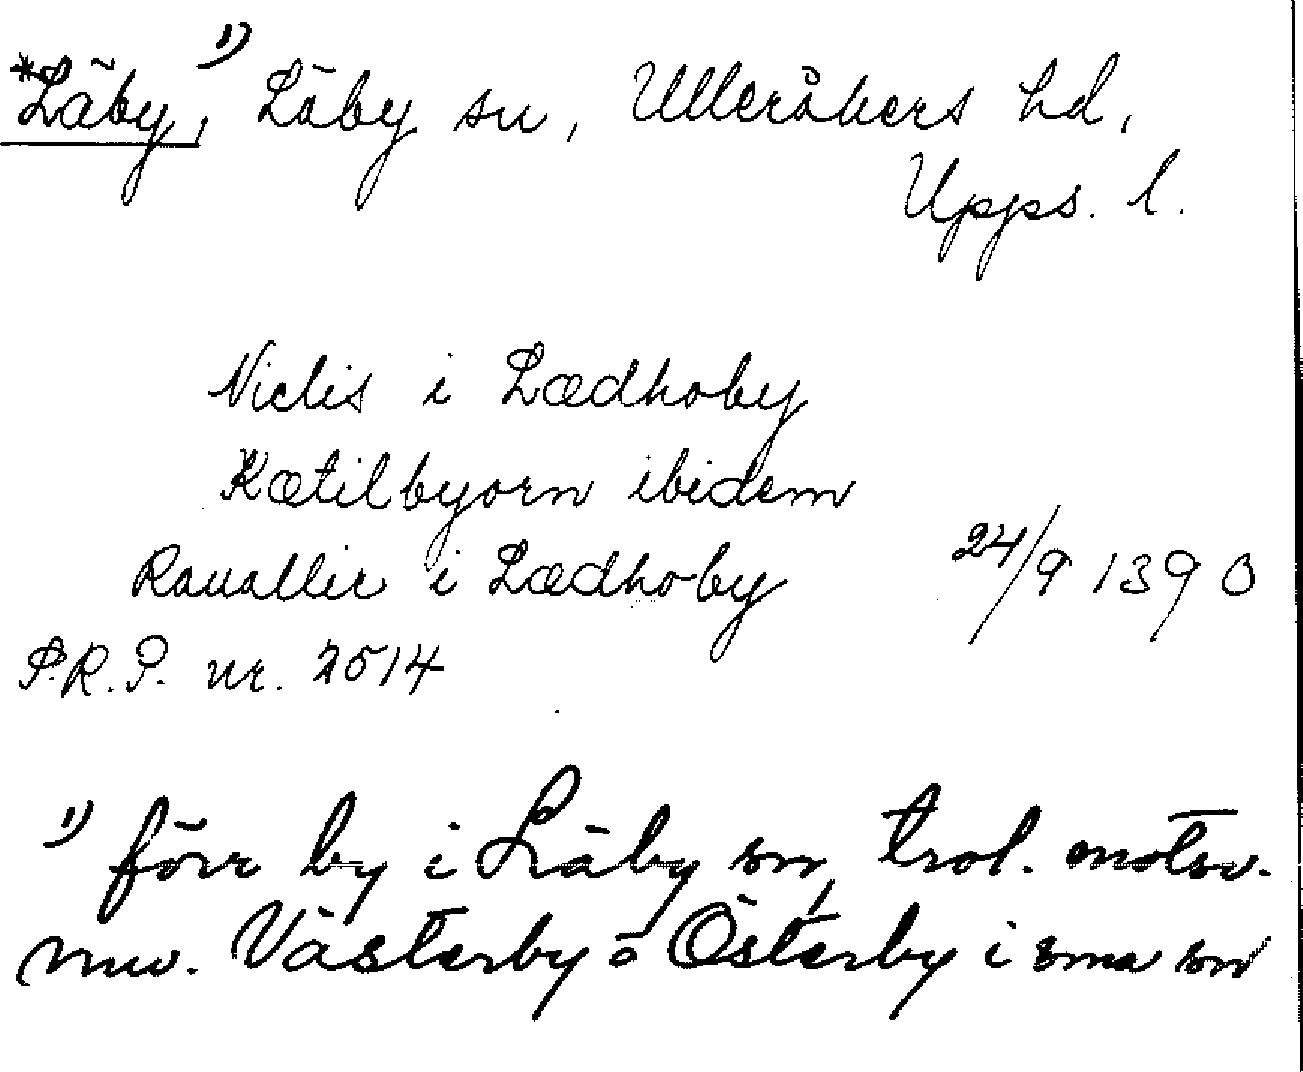 *Läby,¹⁾ Läby sn, Ulleråkers hd,
Upps. l.
Niclis i Lædhoby
Kætilbyorn ibidem
Raualler i Lædhoby 24/9 1390
S.R.P. nr. 2514
¹⁾ förr by i Läby sn, trol. motsv.
nuv. Västerby o Österby i sma sn